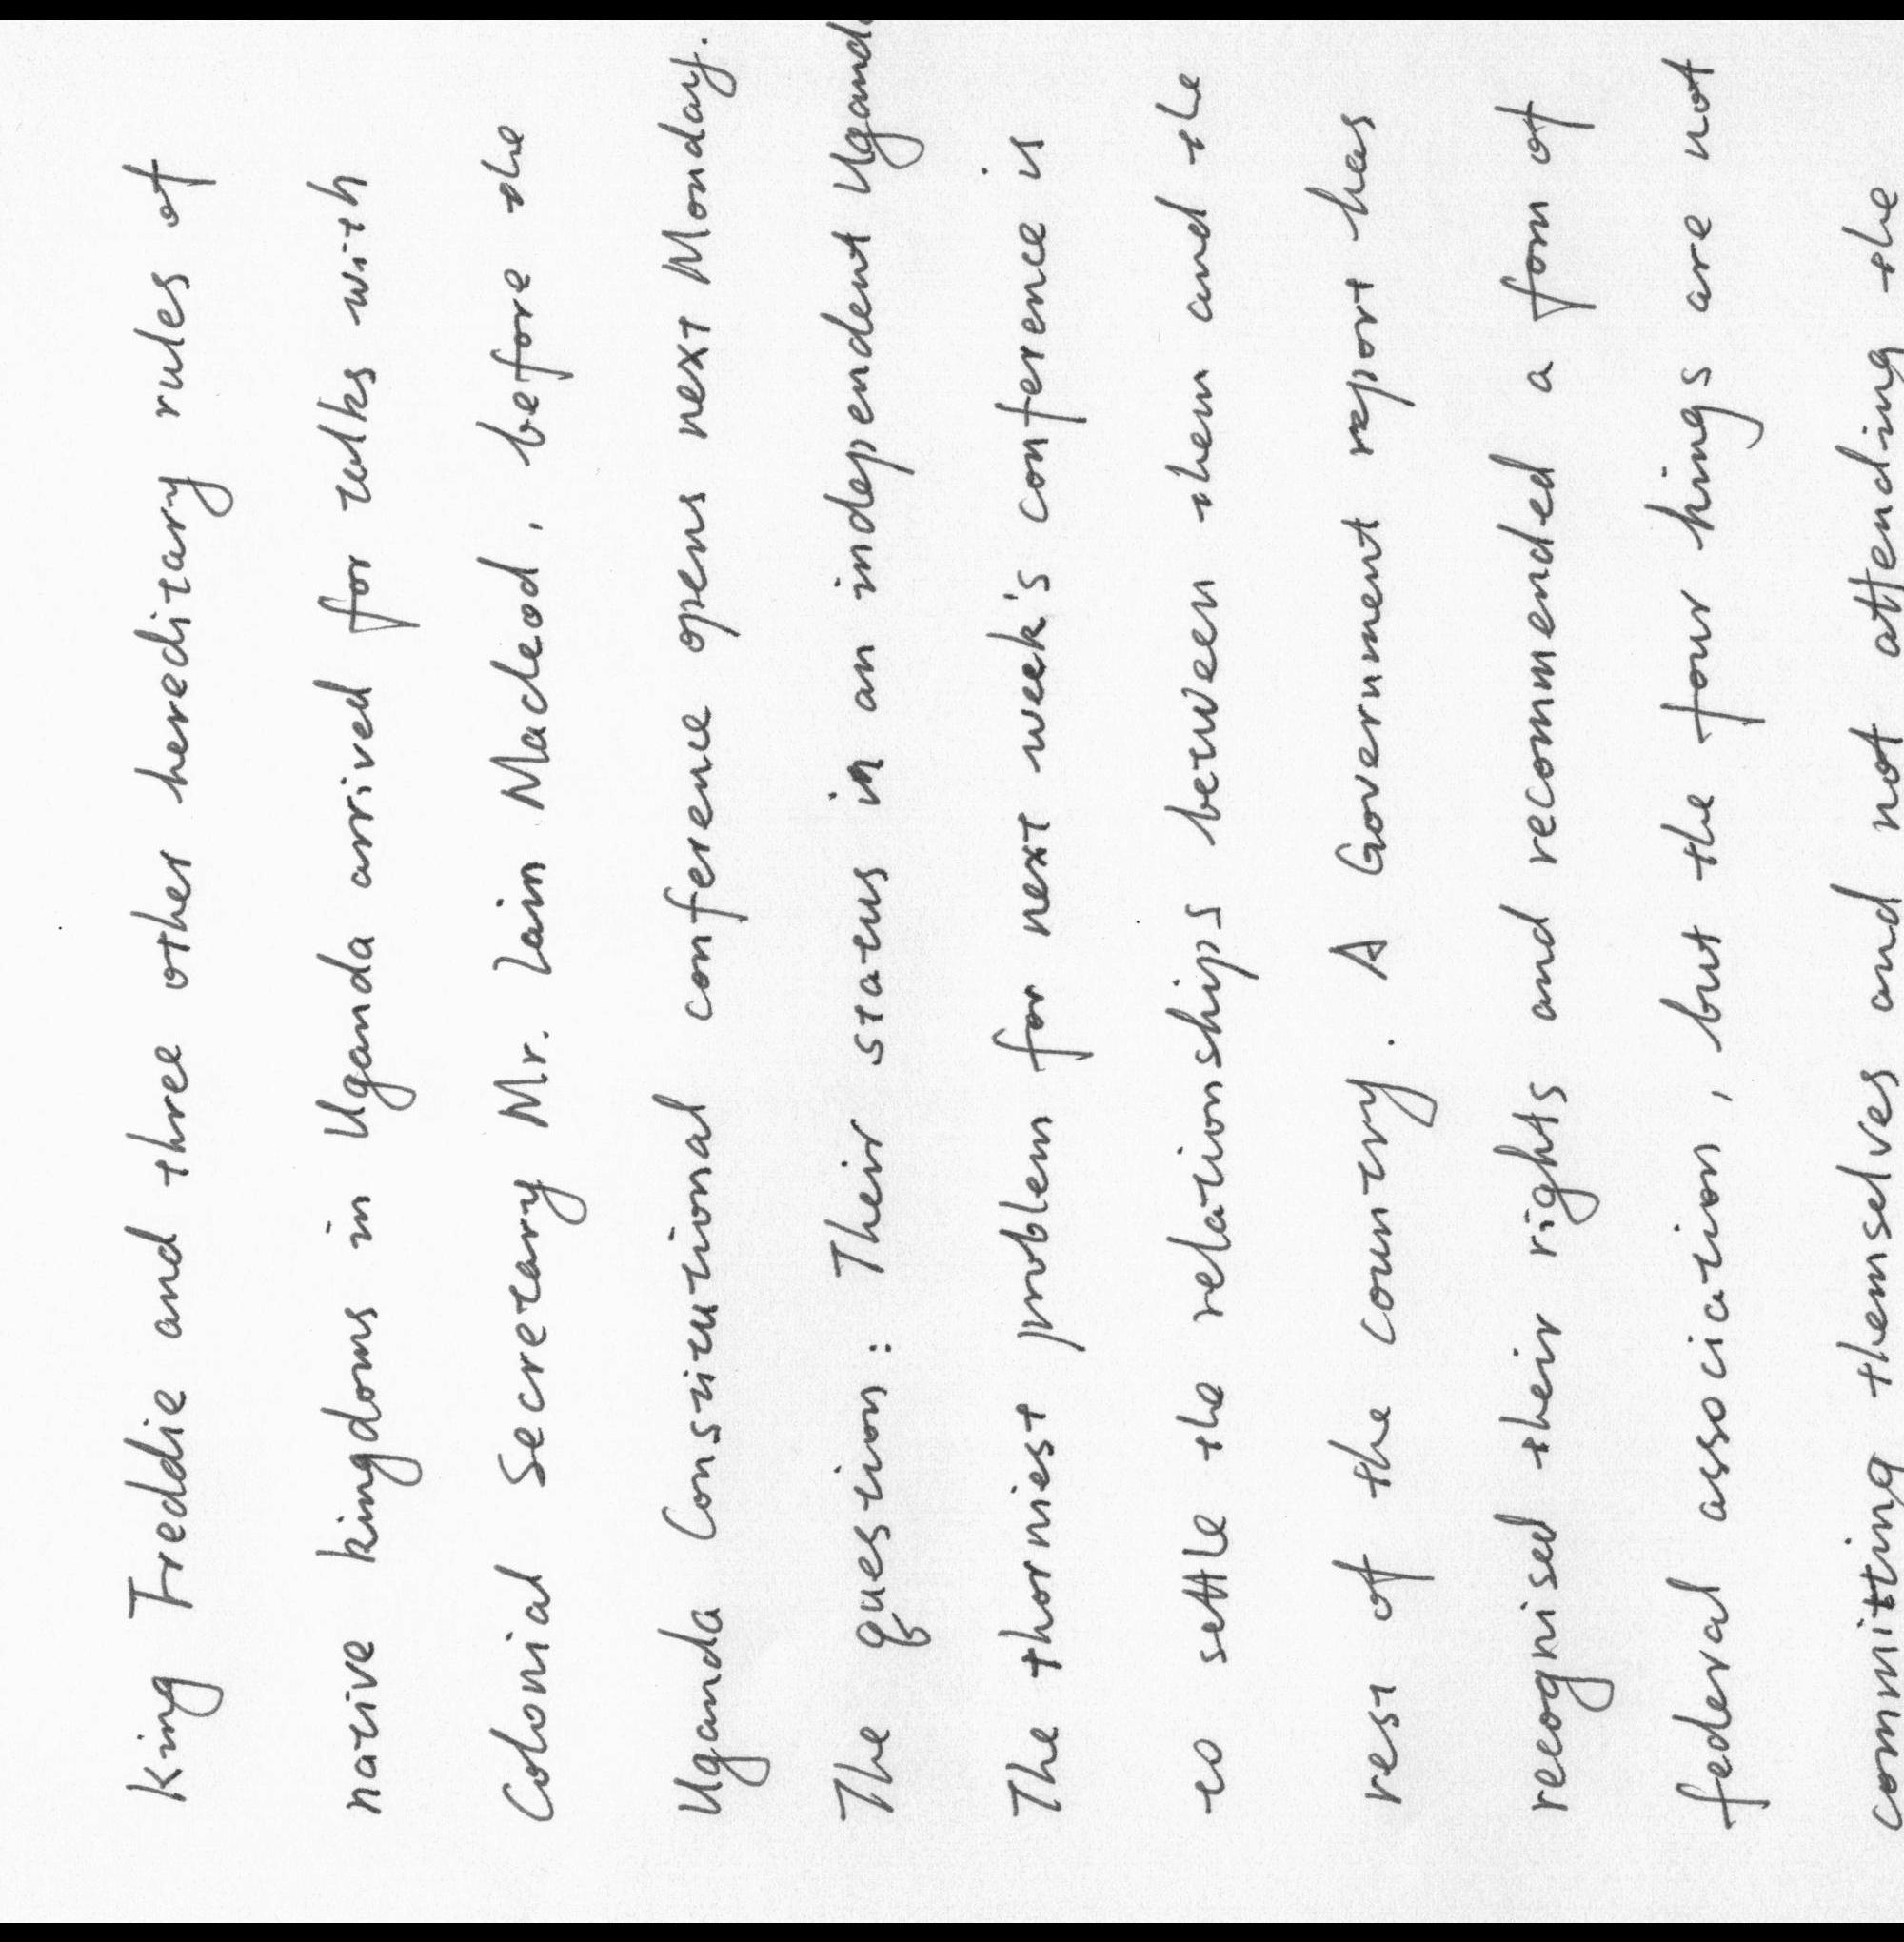 King Freddie and three other hereditary rules of
native kingdoms in Uganda arrived for talks with
Colonial Secretary Mr. Iain Macleod, before the
Uganda Constitutional conference opens next Monday.
The question: Their status in an independent Uganda
The thorniest problem for next week's conference is
to settle the relationships between them and the
rest of the country. A Government report has
recognised their rights and recommended a form of
federal association, but the four kings are not
commiting themselves and not attending the